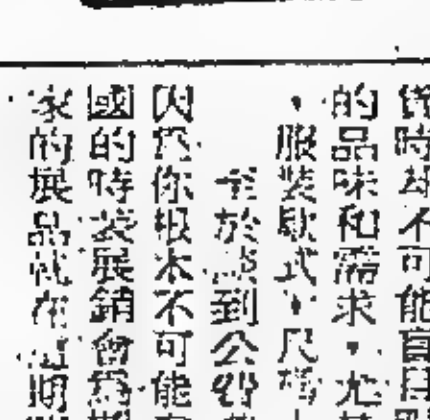 貨時却不可能盲目
的品味和需求，尤
，服裝款式，尺碼
至於談到公
因爲你根本不可能
國的時裝展銷會爲
家的展品就在這期